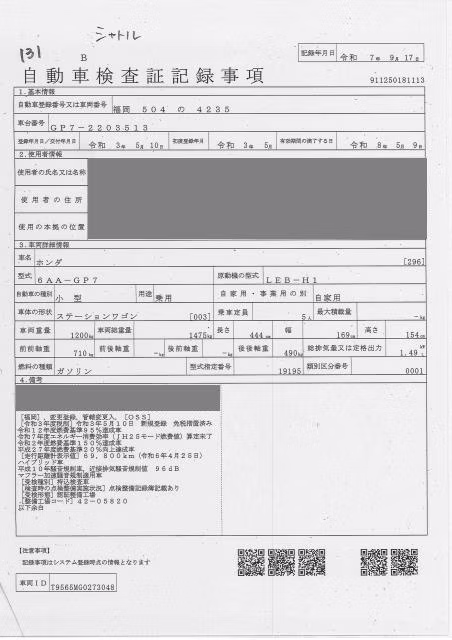 シャトル
131
B
記録年月日 令和 7年 9月 17日
自動車検査証記録事項
911250181113
1.基本情報
自動車登録番号又は車両番号 福岡 504 の 4235
車台番号 GP7-2203513
登録年月日/交付年月日 令和 3年 5月 10日 初度登録年月 令和 3年 5月 有効期間の満了する日 令和 8年 5月 9日
2.使用者情報
使用者の氏名又は名称
使用者の住所
使用の本拠の位置
3.車両詳細情報
車名 ホンダ [296]
型式 6AA-GP7 原動機の型式 LEB-H1
自動車の種別 小型 用途 乗用 自家用・事業用の別 自家用
車体の形状 ステーションワゴン [003] 乗車定員 5人 最大積載量 -kg
車両重量 1200kg 車両総重量 1475kg 長さ 444cm 幅 169cm 高さ 154cm
前前軸重 710kg 前後軸重 -kg 後前軸重 -kg 後後軸重 490kg 総排気量又は定格出力 1.49 kW L
燃料の種類 ガソリン 型式指定番号 19195 類別区分番号 0001
4.備考
[福岡],変更登録,管轄変更入,[OSS]
[令和3年度税制]令和3年5月10日 新規登録 免税措置済み
令和12年度燃費基準95%達成車
令和7年度エネルギー消費効率(JH25モード燃費値)算定未了
令和2年度燃費基準150%達成車
平成27年度燃費基準20%向上達成車
[走行距離計表示値]69,800km(令和6年4月25日)
ハイブリッド車
平成10年騒音規制車,近接排気騒音規制値 96dB
マフラー加速騒音規制適用車
[受検種別]持込検査車
[検査時の点検整備実施状況]点検整備記録簿記載あり
[受検形態]認証整備工場
[整備工場コード]42-05820
以下余白
【注意事項】
記録事項はシステム登録時点の情報となります
車両ID T9565MG0273048